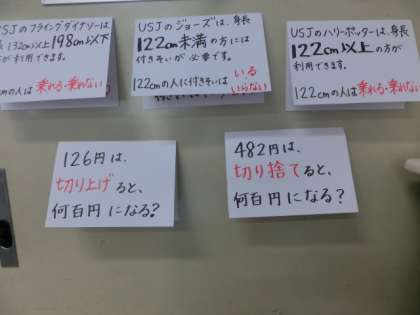 USJのフライングダイナソーは、
長132cm以上198cm以下
が利用できます。
cmの人は乗れる・乗れない
USJのジョーズは、身長
122cm未満の方には
付きそいが必要です。
122cmの人に付きそいは いる
いらない
USJのハリーポッターは、身長
122cm以上の方が
利用できます。
122cmの人は乗れる・乗れない
126円は、
切り上げると、
何百円になる?
482円は、
切り捨てると、
何百円になる?